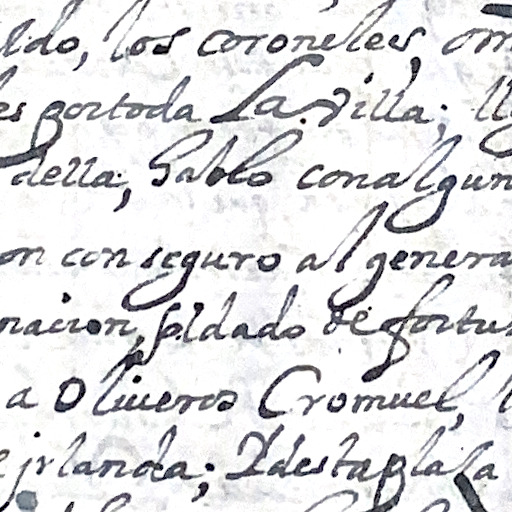 ldo, los coroneles, om
es por toda La Villa; ll
della, hablo con algun
on con seguro al genera
nacion, soldado de fortu
a Oliueros Cromuel, l
e jrlanda; I desta plaza